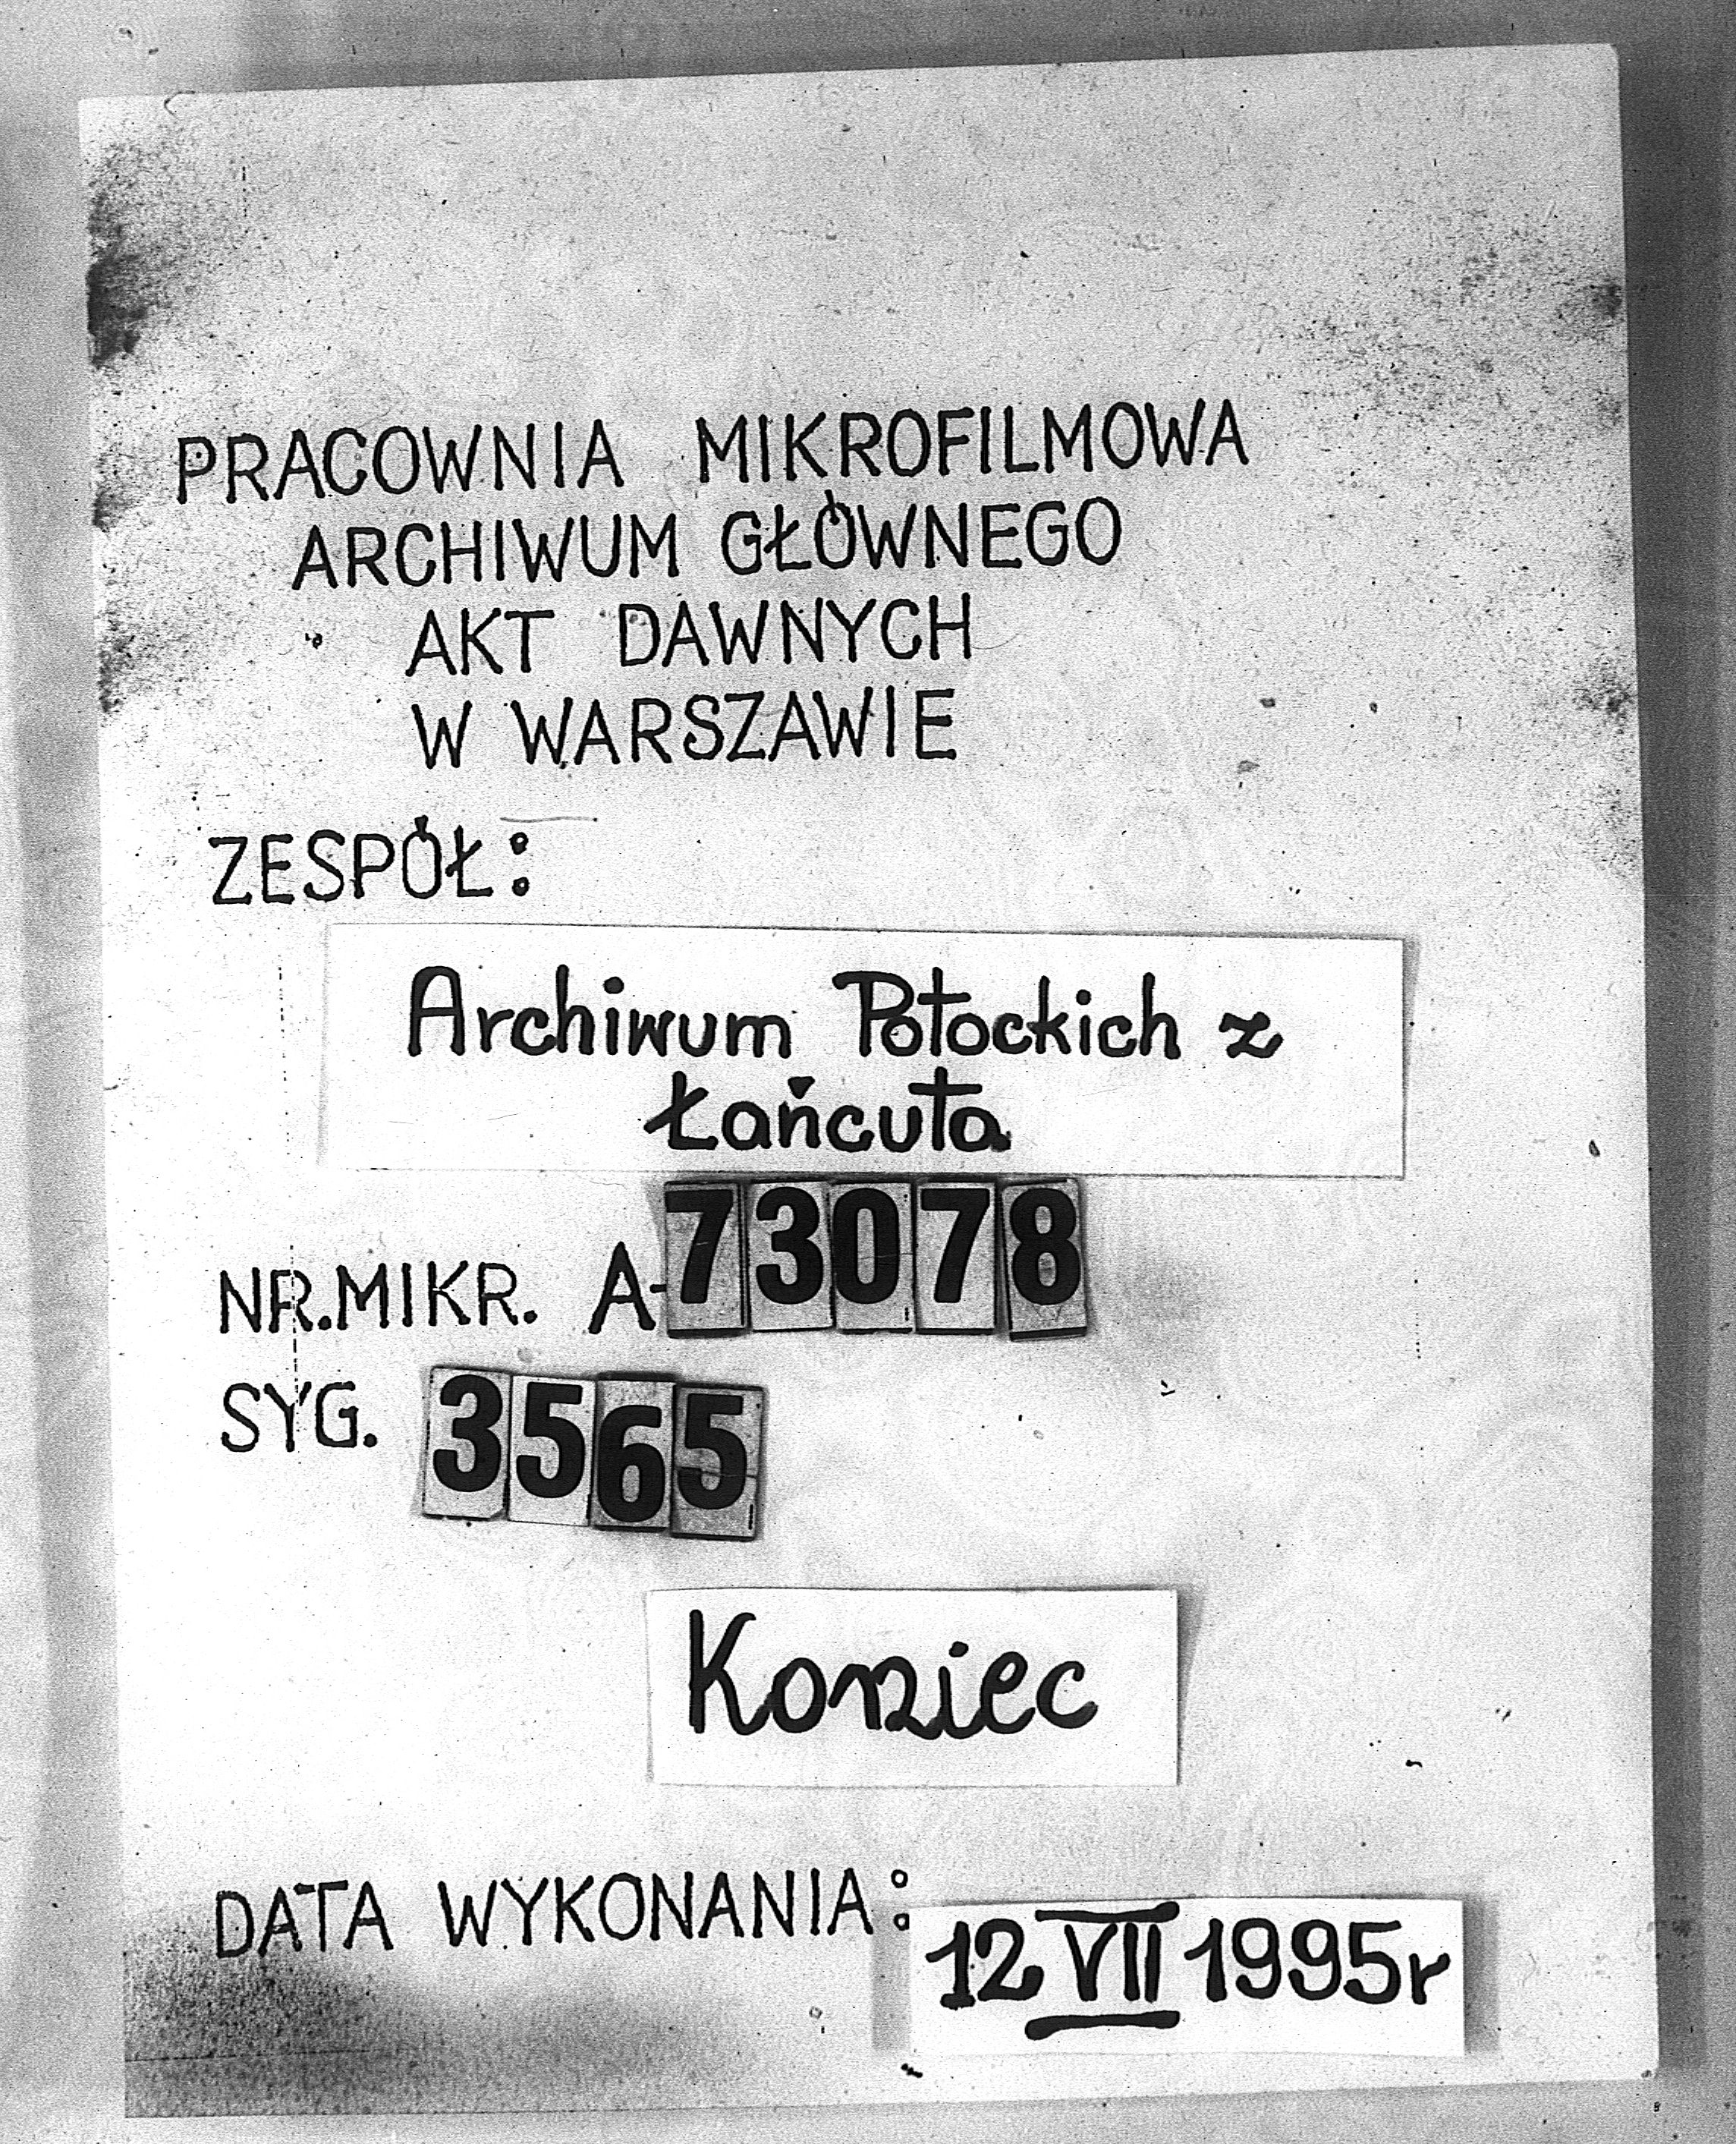 PRACOWNIA MIKROFILMOWA
ARCHIWUM GŁÓWNEGO
AKT DAWNYCH
W WARSZAWIE
ZESPÓŁ:
Archiwum Potockich z
Łańcuta
NR.MIKR. A-73078
SYG. 3565
Koniec
DATA WYKONANIA: 12 VII 1995r